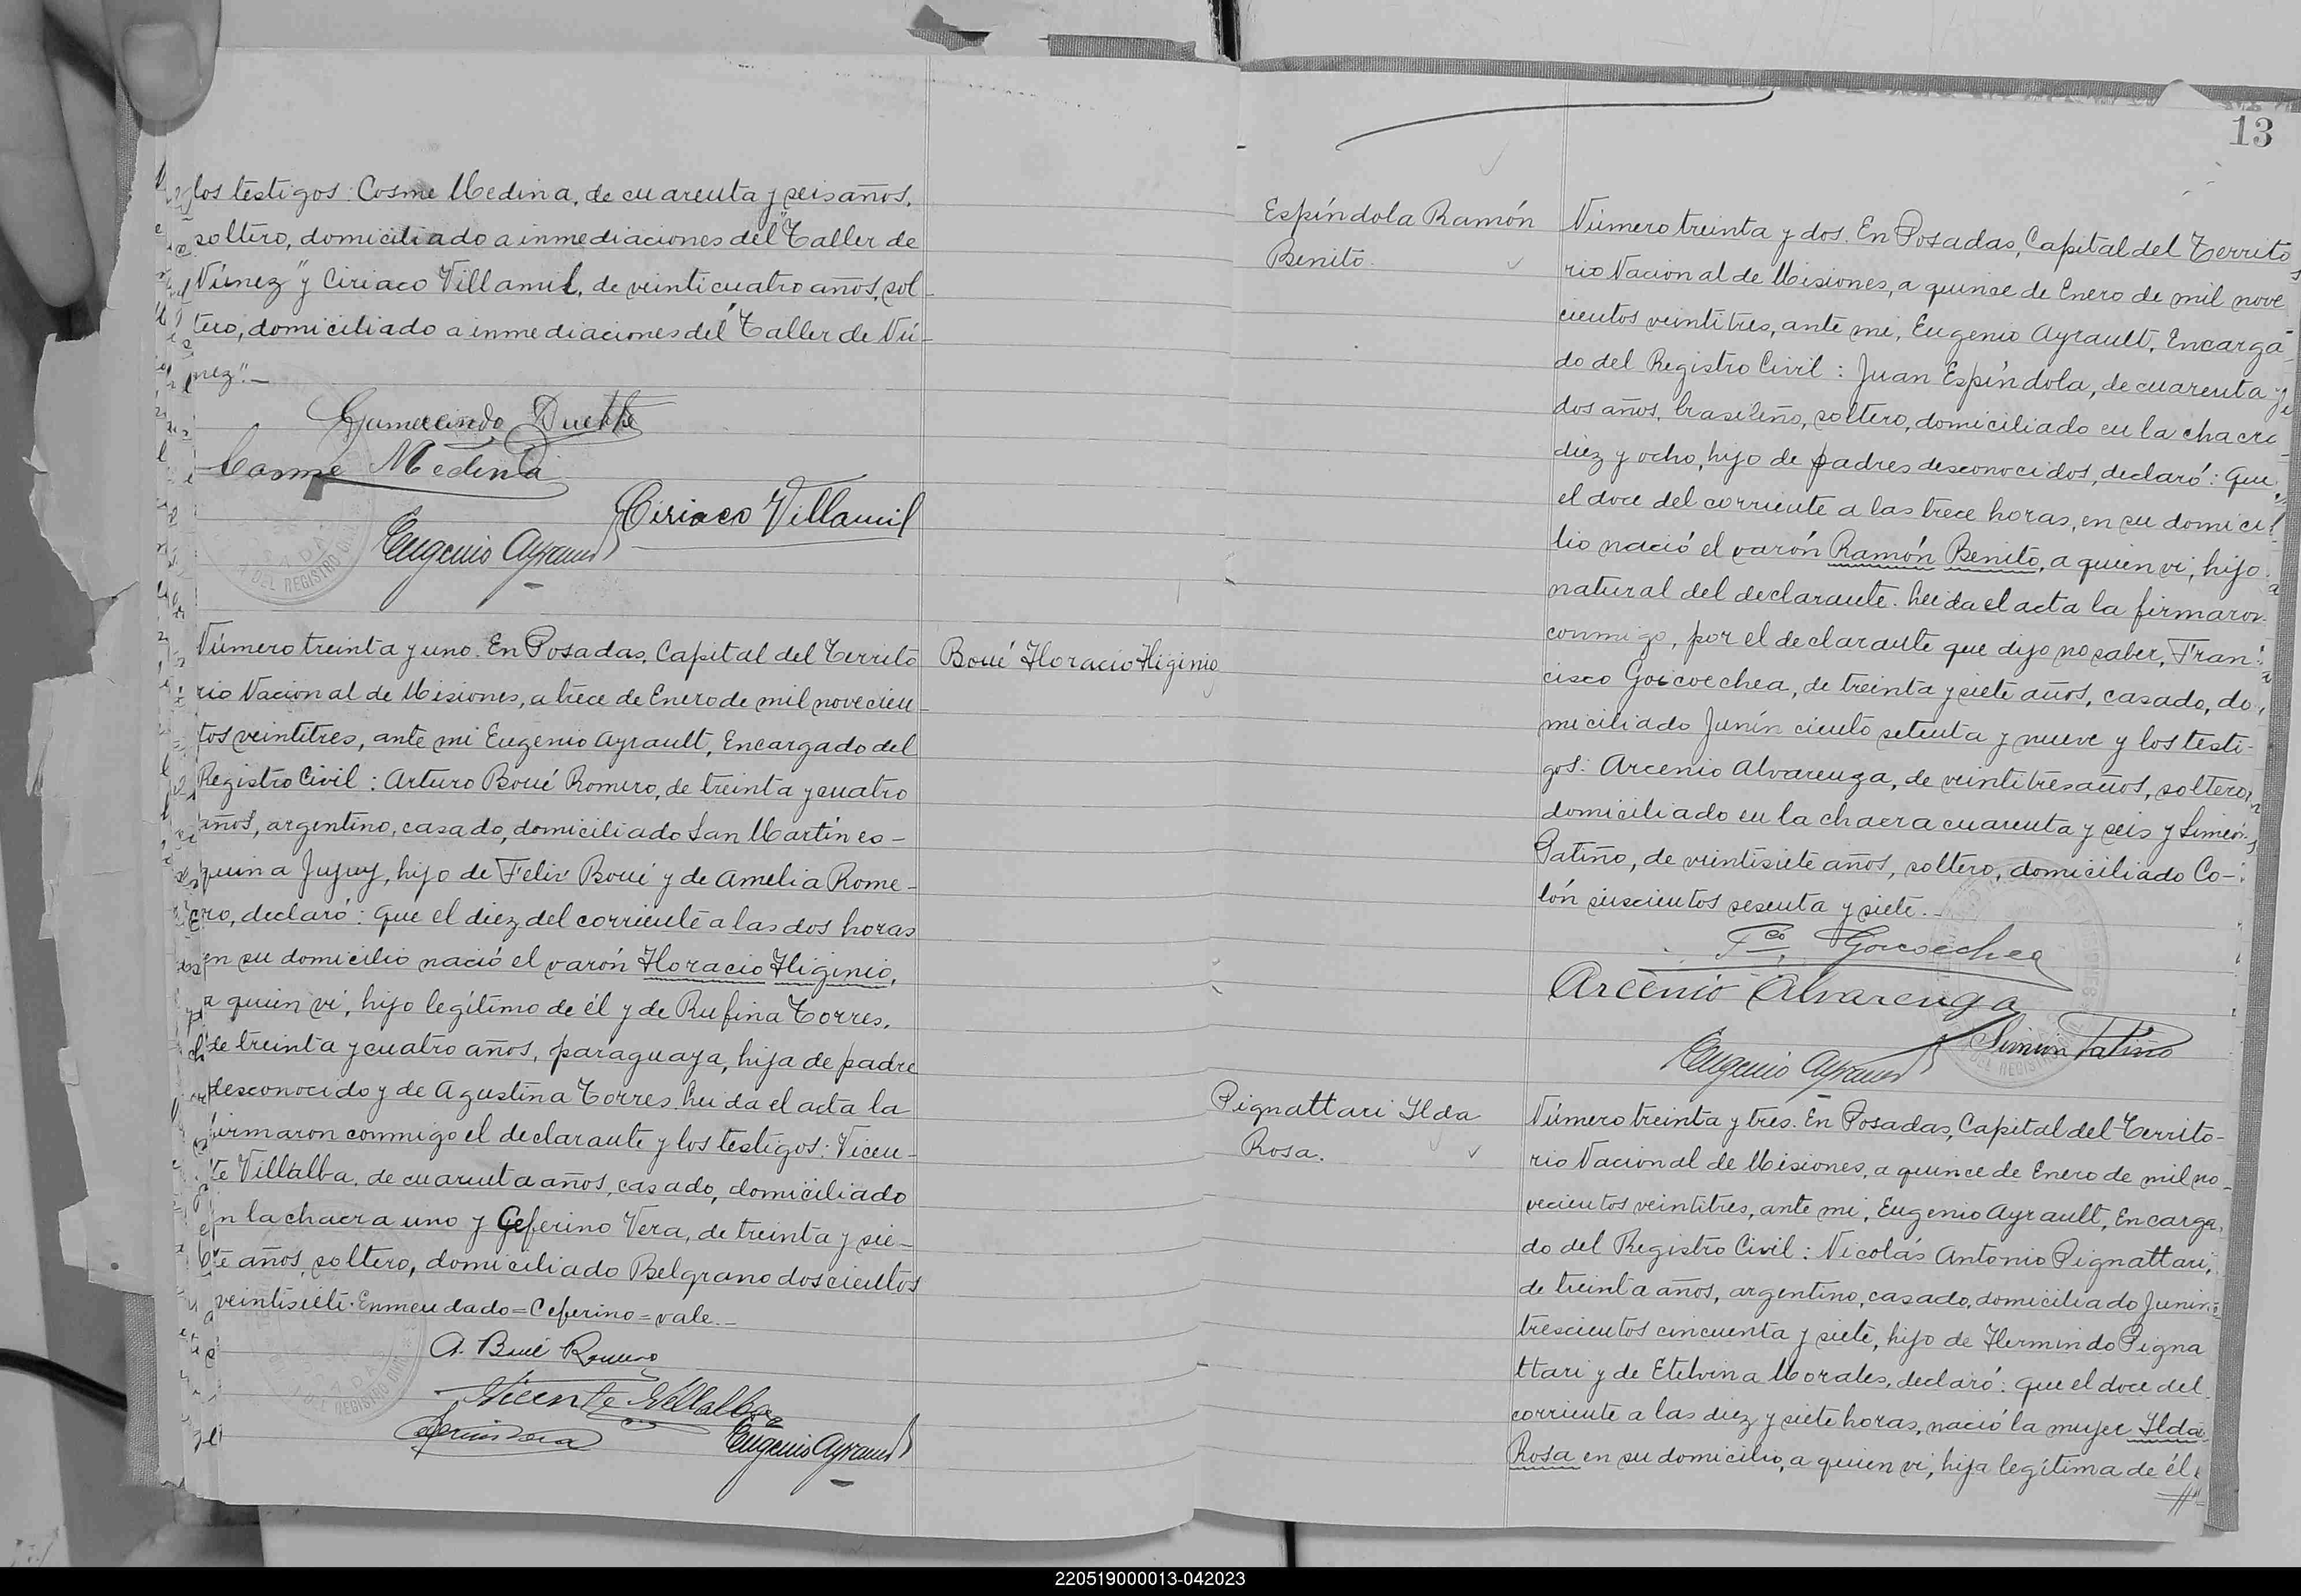 los testigos: Cosme Medina, de cuarenta y seis años,
soltero, domiciliado a inmediaciones del "Taller de
Núnez" y Ciriaco Villamil, de veinticuatro años, sol-
tero, domiciliado a inmediaciones del "Taller de Nú-
nez".—
Gumercindo Duette
Cosme Medina
Ciriaco Villamil
Eugenio Ayrault
Boué Horacio Higinio
Número treinta y uno. En Posadas, Capital del Territo
rio Nacional de Misiones, a trece de Enero de mil novecien-
tos veintitres, ante mi Eugenio Ayrault, Encargado del
Registro Civil: Arturo Boué Romero, de treinta y cuatro
años, argentino, casado, domiciliado San Martín es-
quina Jujuy, hijo de Felix Boué y de Amelia Rome-
ro, declaró: Que el diez del corriente a las dos horas
en su domicilio nació el varón Horacio Higinio,
a quien vi, hijo legítimo de él y de Rufina Torres,
de treinta y cuatro años, paraguaya, hija de padre
desconocido y de Agustina Torres. Leida el acta la
firmaron conmigo el declarante y los testigos: Vicen-
te Villalba, de cuarenta años, casado, domiciliado
en la chacra uno y Ceferino Vera, de treinta y sie-
te años, soltero, domiciliado Belgrano doscientos
veintisiete. Enmendado=Ceferino=vale.—
A. Boué Romero
Vicente Villalba
Ceferino Vera
Eugenio Ayrault
13
Espíndola Ramón
Benito.
Número treinta y dos. En Posadas, Capital del Territo
rio Nacional de Misiones, a quince de Enero de mil nove
cientos veintitres, ante mi, Eugenio Ayrault, Encarga-
do del Registro Civil: Juan Espíndola, de cuarenta y
dos años, brasileño, soltero, domiciliado en la chacra
diez y ocho, hijo de padres desconocidos, declaró: Que
el doce del corriente a las trece horas, en su domici
lio nació el varón Ramón Benito, a quien vi, hijo
natural del declarante. Leida el acta la firmaron
conmigo, por el declarante que dijo no saber, Fran-
cisco Goicoechea, de treinta y siete años, casado, do-
miciliado Junín ciento setenta y nueve y los testi-
gos: Arcenio Alvarenga, de veintitres años, soltero,
domiciliado en la chacra cuarenta y seis y Simeón
Patiño, de veintisiete años, soltero, domiciliado Co-
lón seiscientos sesenta y siete.—
Fco. Goicoechea
Arcenio Alvarenga
Simeon Patiño
Eugenio Ayrault
Pignattari Ilda
Rosa.
Número treinta y tres. En Posadas, Capital del Territo-
rio Nacional de Misiones, a quince de Enero de mil no-
vecientos veintitres, ante mi, Eugenio Ayrault, Encarga-
do del Registro Civil: Nicolás Antonio Pignattari,
de treinta años, argentino, casado, domiciliado Junín
trescientos cincuenta y siete, hijo de Hermindo Pigna
ttari y de Etelvina Morales, declaró: Que el doce del
corriente a las diez y siete horas, nació la mujer Ilda
Rosa en su domicilio, a quien vi, hija legítima de él
220519000013-042023